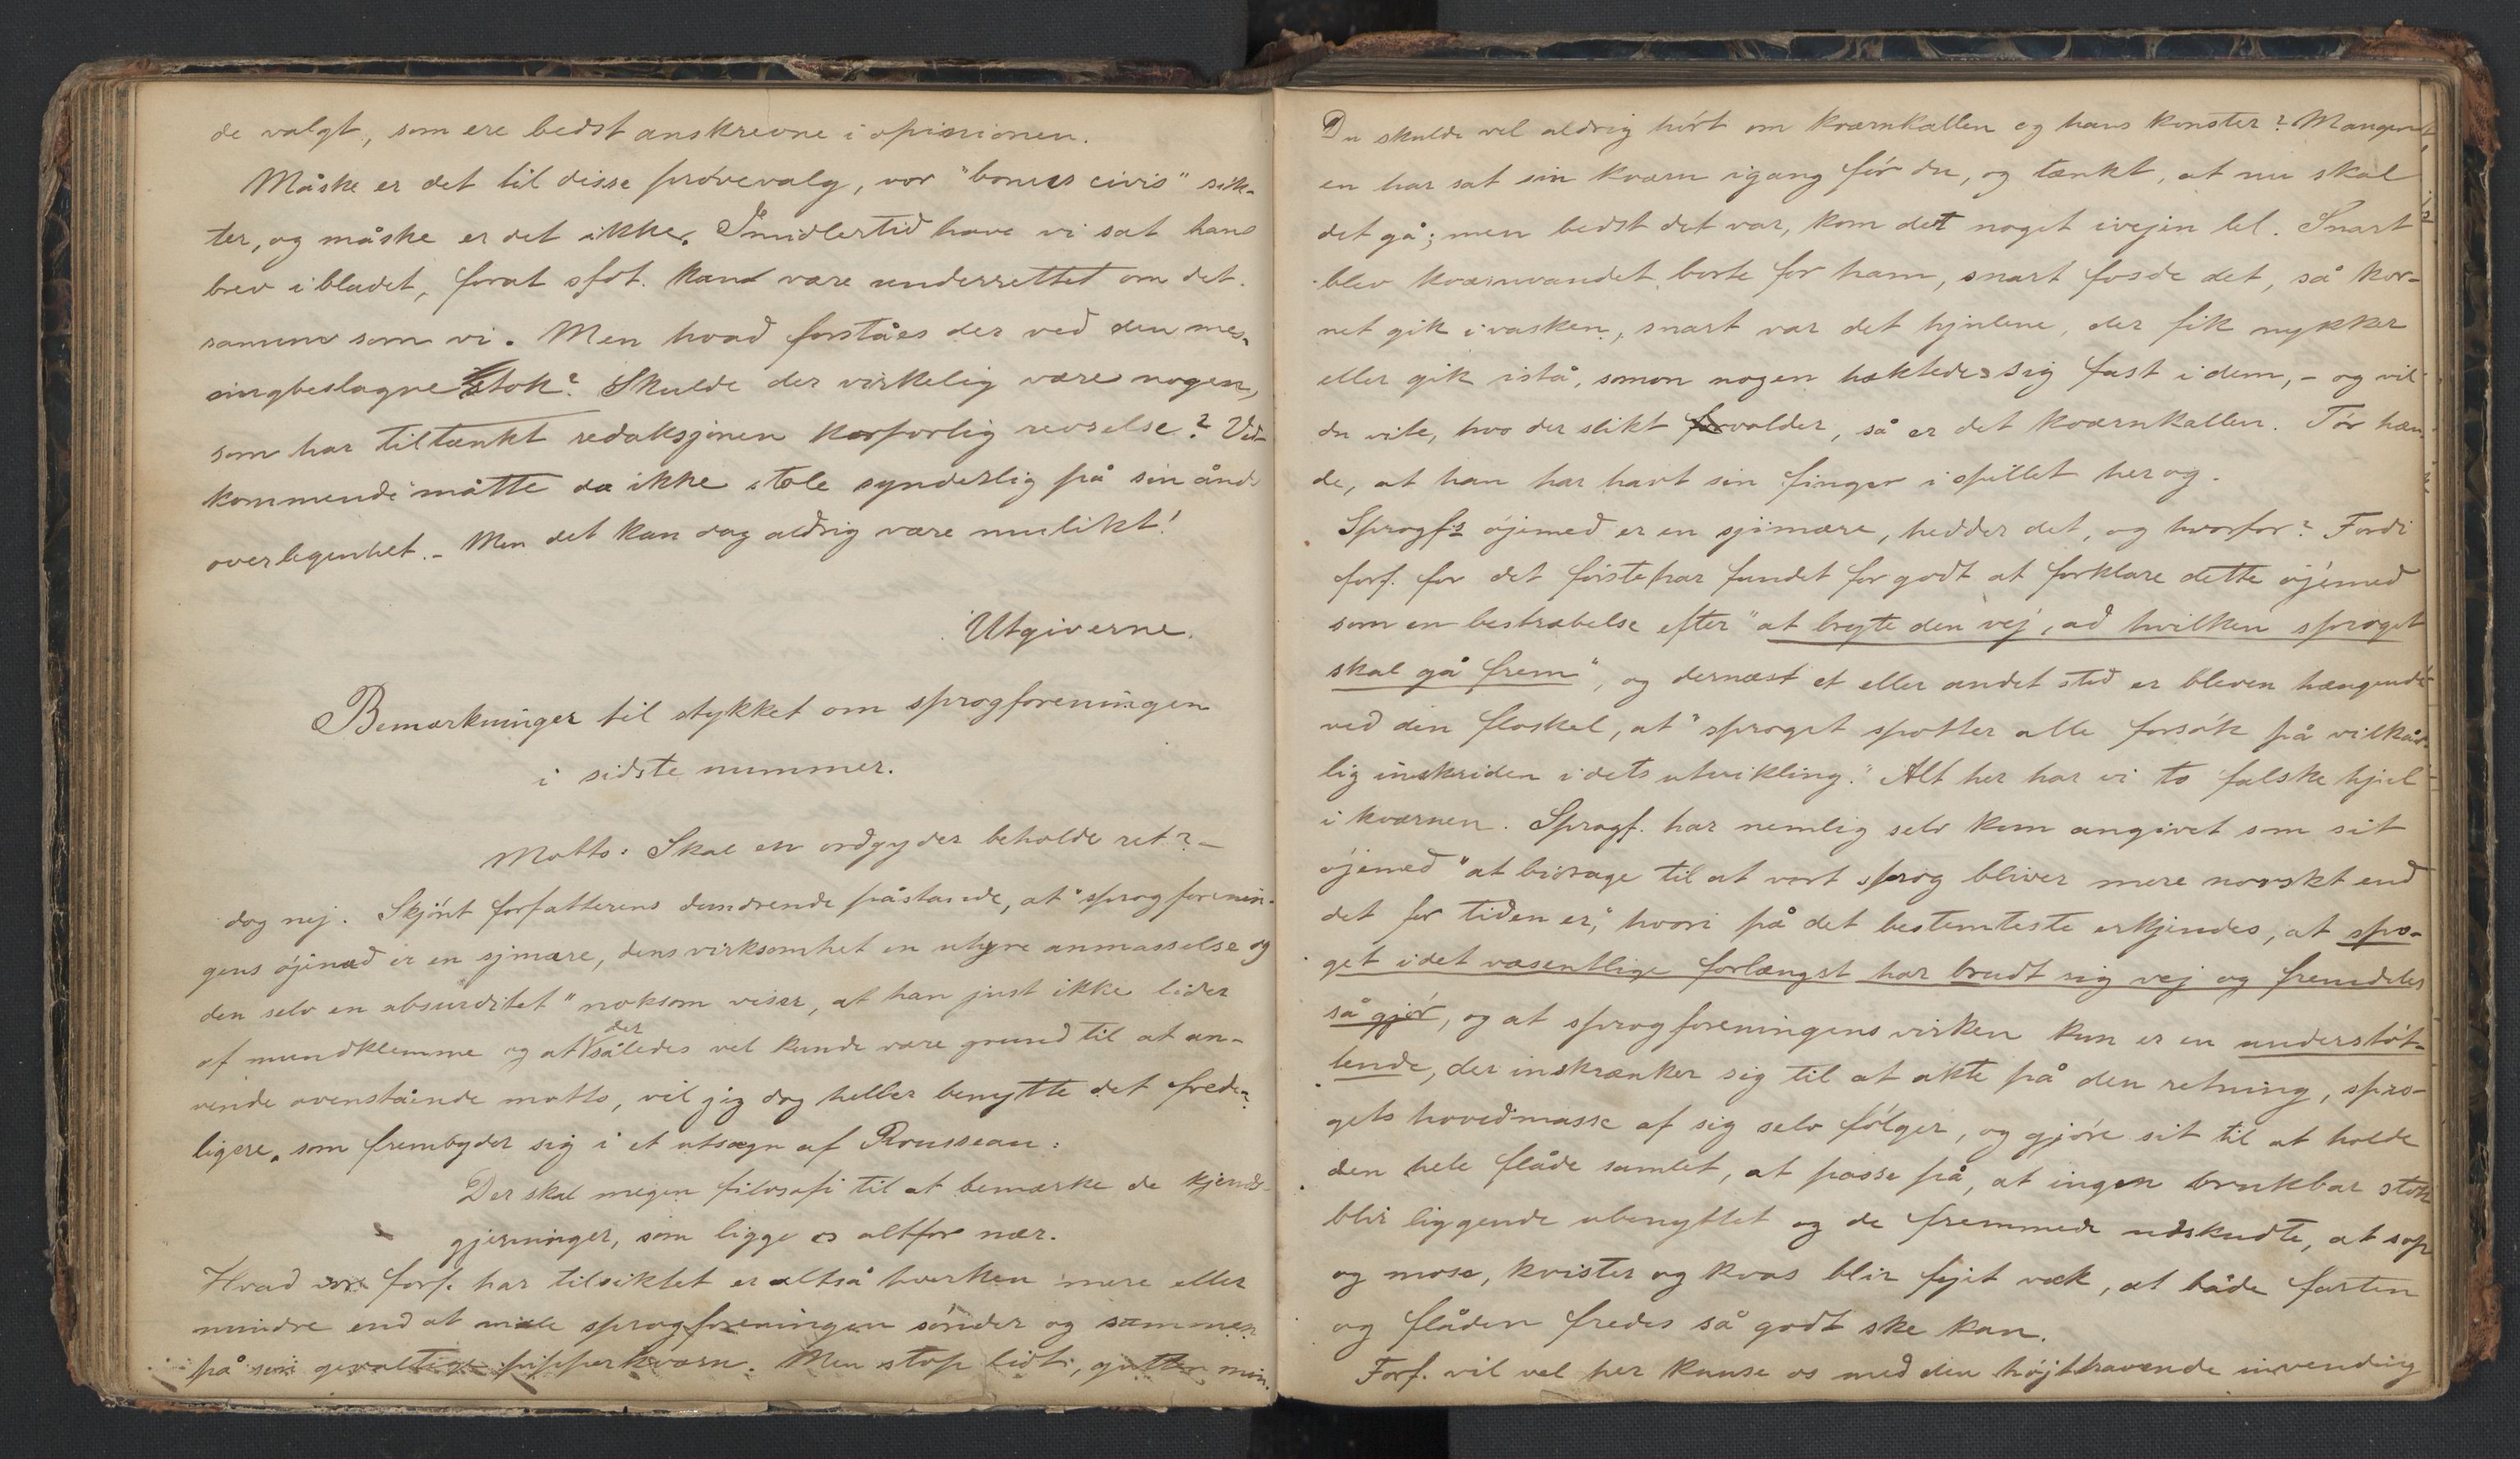 de valgt, som ere bedst anskrevne i opinionen.
Måske er det til disse prövevalg, vor "bonus civis" sik-
ter, og måske er det ikke. Imidlertid have vi sat hans
brev i bladet, forat sfdt. kan være underrettet om det
samme som vi. Men hvad forståes der ved den mes-
singbeslagne stok? Skulde der virkelig være nogen,
som har tiltænkt redaksjonen korporlig revselse? Ved-
kommende måtte da ikke stole synderlig på sin ånds
overlegenhet. - Men det kan dog aldrig være mulikt!
Utgiverne.
Bemærkninger til stykket om sprogforeningen
i sidste nummer.
Motto: Skal en ordgyder beholde ret? -
dog nej. Skjönt forfatterens dundrende påstande, at "sprogforenin-
gens öjemed er en sjimære, dens virksomhet en uhyre anmasselse og
den selv en absurditet" noksom viser, at han just ikke lider
af mundklemme og at der således vel kunde være grund til at an-
vende ovenstående motto, vil jeg dog heller benytte det frede-
ligere, som frembyder sig i et utsagn af Rousseau:
Der skal megen filosofi til at bemærke de kjends-
gjerninger, som ligge os altfor nær.
Hvad forf. har tilsiktet er altså hverken mere eller
mindre end at male sprogforeningen sönder og sammen
på sin gevaltige pipperkværn. Men stop lidt, gutten min.
Du skulde vel aldrig hört om kværnkallen og hans kunster? Mangen
en har sat sin kværn igang för du, og tænkt, at nu skal
det gå; men bedst det var, kom det noget ivejen lel. Snart
blev kværnvandet borte for ham, snart fosde det, så kor-
net gik i vasken, snart var det hjulene, der fik nykker
eller gik istå, somon nogen hæktede sig fast i dem, - og vil
du vite, hvo der slikt forvolder, så er det kværnkallen. Tör hæn-
de, at han har havt sin finger i spillet her og.
Sprogfs öjemed er en sjimære, hedder det, og hvorfor? Fordi
forf. for det förste har fundet for godt at forklare dette öjemed
som en bestræbelse efter "at bryte den vej, ad hvilken sproget
skal gå frem", og dernæst et eller andet sted er bleven hængende
ved den floskel, at "sproget spotter alle forsök på vilkår-
lig inskriden i dets utvikling." Alt her har vi to falske hjul
i kværnen. Sprogf. har nemlig selv kun angivet som sit
öjemed "at bidrage til at vort sprog bliver mere norskt end
det for tiden er," hvori på det bestemteste erkjendes, at spro-
get i det væsentlige forlængst har brudt sig vej og fremdeles
så gjör, og at sprogforeningens virken kun er en understöt-
tende, der inskrænker sig til at akte på den retning, spro-
gets hovedmasse af sig selv fölger, og gjöre sit til at holde
den hele flåde samlet, at passe på, at ingen brukbar stok
blir liggende ubenyttet og de fremmede udskudte, at sop
og mose, kvister og kvas blir fejet væk, at både farten
og flåden fredes så godt ske kan.
Forf. vil vel her kanse os med den höjtravende invending